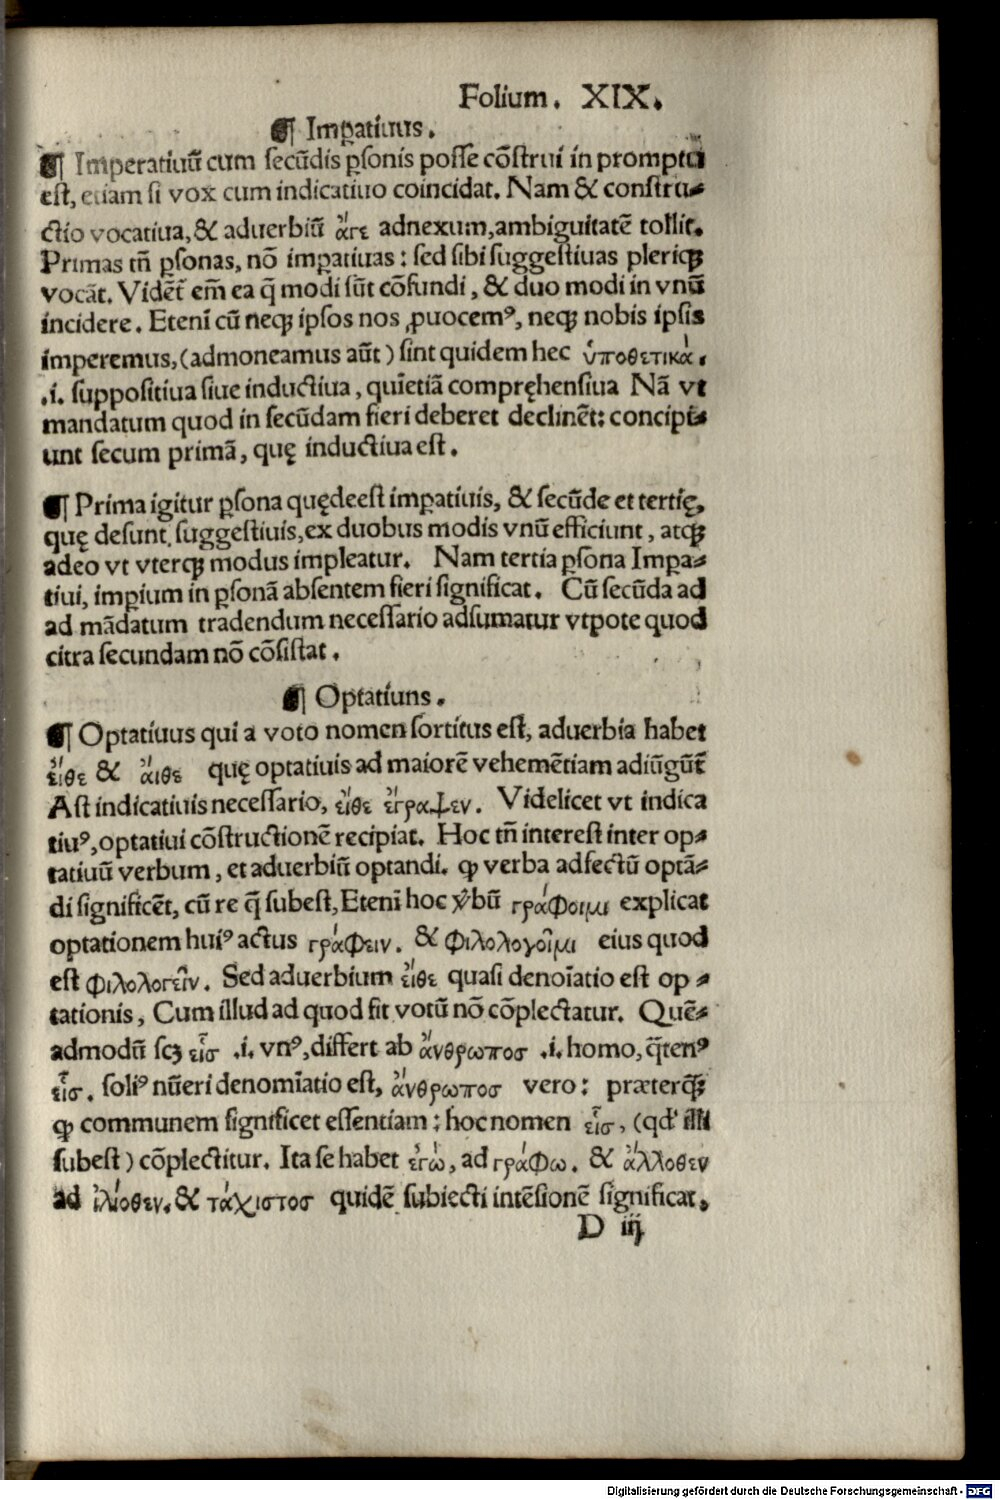 Folium. XIX.
¶ Impatiuus.
¶ Imperatiuū cum secūdis ꝑsonis posse cōstrui in promptu
est, etiam si vox cum indicatiuo coincidat. Nam & constru-
ctio vocatiua, & aduerbiū ἄγε adnexum, ambiguitatē tollit.
Primas tñ ꝑsonas, nō imꝑatiuas: sed sibi suggestiuas pleriqꝫ
vocāt. Vidēt em̄ ea q̄ modi sūt cōfundi, & duo modi in vnū
incidere. Eteni cū neqꝫ ipsos nos ꝓuocemꝰ, neqꝫ nobis ipsis
imperemus, (admoneamus aūt) sint quidem hec ὑποθετικὰ.
.i. suppositiua siue inductiua, quīetiā compręhensiua Nā vt
mandatum quod in secūdam fieri deberet declinēt: concipi-
unt secum primā, quę inductiua est.
¶ Prima igitur ꝑsona quędeest imꝑatiuis, & secūde et tertię,
quę desunt suggestiuis, ex duobus modis vnū efficiunt, atqꝫ
adeo vt vterqꝫ modus impleatur. Nam tertia ꝑsona Imꝑa-
tiui, imꝑium in ꝑsonā absentem fieri significat. Cū secūda ad
ad mādatum tradendum necessario adsumatur vtpote quod
citra secundam nō cōsistat.
¶ Optatiuns.
¶ Optatiuus qui a voto nomen sortitus est, aduerbia habet
εἴθε & ἄιθε quę optatiuis ad maiorē vehemētiam adiūgūt
Ast indicatiuis necessario, εἴθε ἔγραψεν. Videlicet vt indica
tiuꝰ, optatiui cōstructionē recipiat. Hoc tñ interest inter op-
tatiuū verbum, et aduerbiū optandi. ꝙ verba adfectū optā-
di significēt, cū re q̄ subest, Eteni hoc v̆bū γράφοιμι explicat
optationem huiꝰ actus γράφειν. & φιλολογοῖμι eius quod
est φιλολογεῖν. Sed aduerbium εἴθε quasi denoīatio est op-
tationis, Cum illud ad quod fit votū nō cōplectatur. Quē-
admodū scꝫ εἷσ .i. vnꝰ, differt ab ἄνθρωποσ .i. homo, q̄tenꝰ
εἷσ. soliꝰ nūeri denomīatio est, ἄνθρωποσ vero: præterqꝫ
ꝙ communem significet essentiam: hoc nomen εἷσ, (qd' illi
subest) cōplectitur. Ita se habet ἐγὼ, ad γράφω. & ἄλλοθεν
ad ἰλιόθεν. & τάχιστοσ quidē subiecti intēsionē significat.
D iij
Digitalisierung gefördert durch die Deutsche Forschungsgemeinschaft - DFG